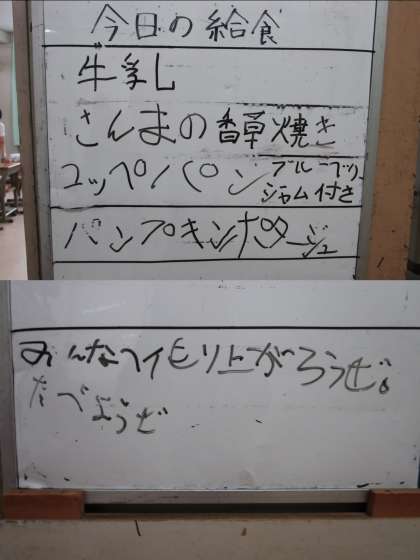 今日の給食
牛乳
さんまの香草焼き
コッペパン ブルーベリー
ジャム付き
パンプキンポタージュ
みんなヘイもり上がろうぜ。
たべようぜ